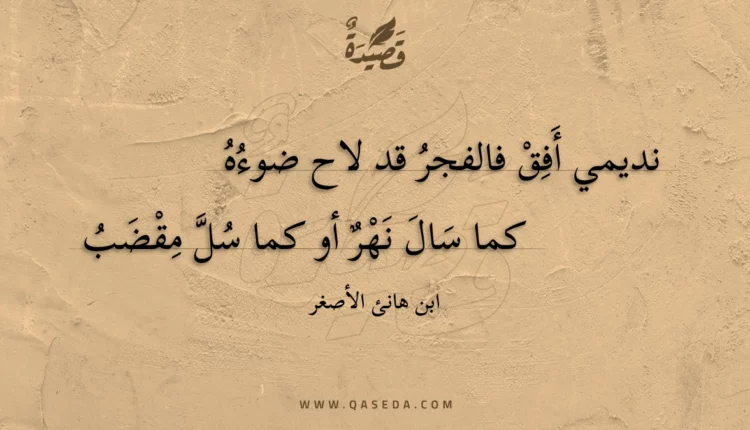 قَصِيْدَةٌ
نديمي أَفِقْ فالفجرُ قد لاح ضوءُهُ
كما سَالَ نَهْرٌ أو كما سُلَّ مِقْضَبُ
ابن هانئ الأصغر
WWW.QASEDA.COM